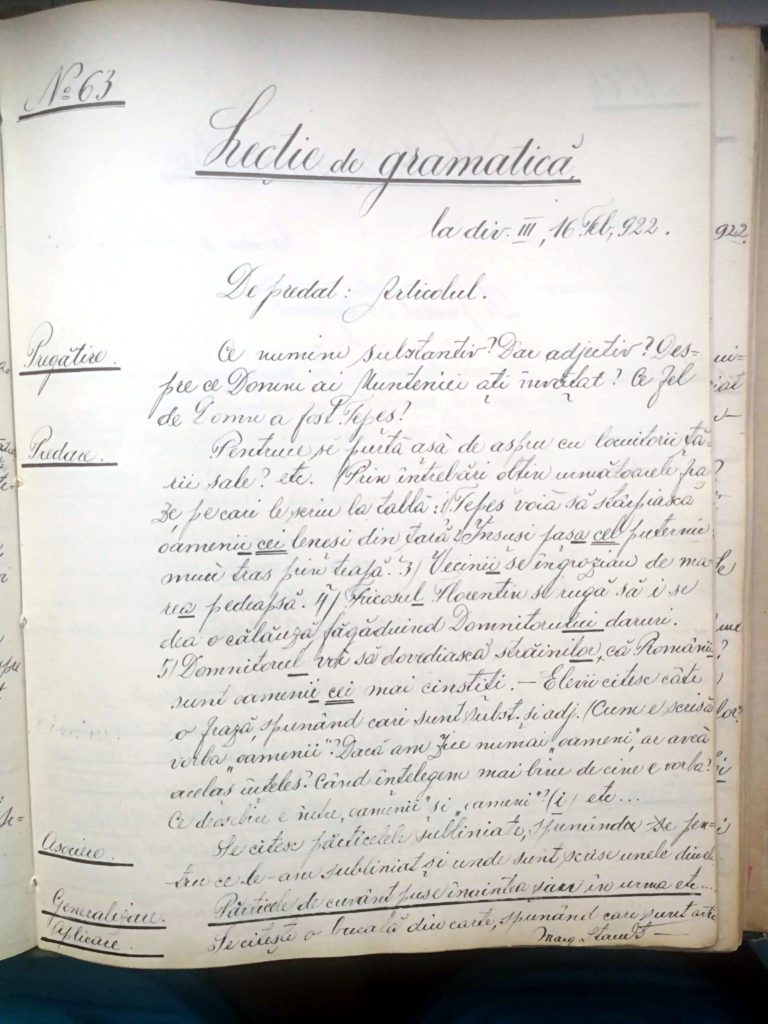 No 63
Lecție de gramatică,
la div. III, 16 Feb, 922.
De predat: Articolul.
Pregătire.
Ce numim substantiv? Dar adjectiv? Des-
pre ce Domni ai Munteniei ați învățat? Ce fel
de Domn a fost Țepeș?
Predare.
Pentruce se purtă așà de aspru cu locuitorii ță-
rii sale? etc. (Prin întrebări obțin următoarele fra-
ze pe cari le scriu la tablă: 1) Țepeș voià să stârpiască
oamenii cei leneși din țară. 2) Însuși pașa cel puternic
muri tras prin țeapă. 3) Vecinii se îngroziau de ma-
rea pedeapsă. 4) Fricosul Florentin se rugă să i se
dea o călăuză, făgăduind Domnitorului daruri.
5) Domnitorul voi să dovediască străinilor, că Românii
sunt oamenii cei mai cinstiți. — Elevii citesc câte
o frază, spunând cari sunt subst. și adj. (Cum e scrisă
vorba "oamenii"? Dacă am zice numai "oameni", ar aveà
acelaș înțeles? Când înțelegem mai bine de cine e vorba?
Ce deosebire e între "oamenii" și "oameni"? (i) etc...
Asociere.
Se citesc părticelele subliniate, spunându-se pen-
tru ce le-am subliniat și unde sunt scrise unele din ele
Generalizare.
Părticele de cuvânt puse înaintea sau în urma etc....
Aplicare.
Se citește o bucată din carte, spunând cari sunt artic
Marg.
922